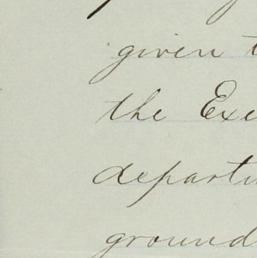 given t
the Exe
departm
ground